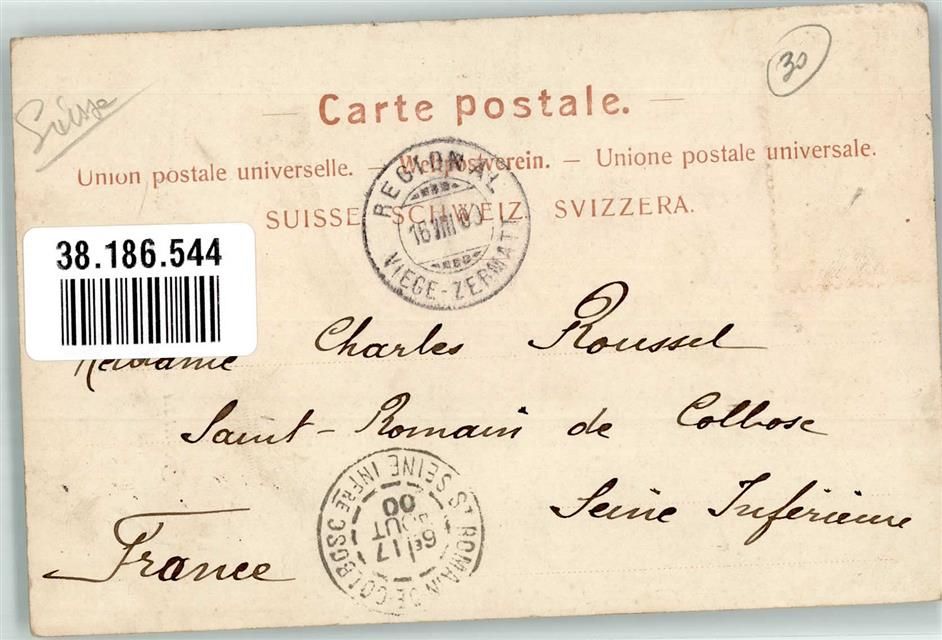 Suisse
30
Carte postale.
Union postale universelle. — Weltpostverein. — Unione postale universale.
SUISSE SCHWEIZ SVIZZERA.
REGIONAL
16 VIII 00
VIEGE-ZERMATT
38.186.544
Madame Charles Roussel
Saint-Romain de Colbosc
Seine Inférieure
France
ST ROMAIN-DE-COLBOSC SEINE INFRE
6E 17
AOUT
00